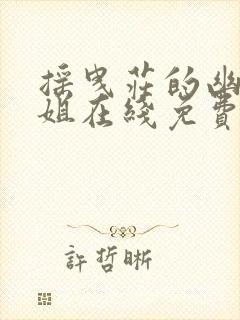 採曳莊的幽
姐在綫免費
許哲晰